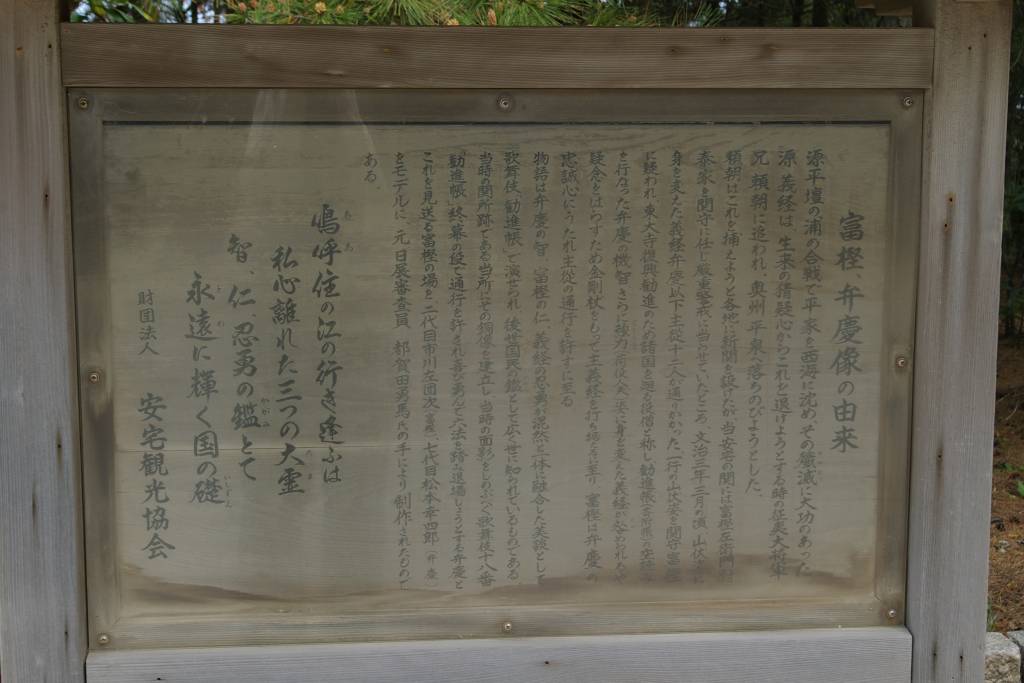 富樫、弁慶像の由来
源平壇の浦の合戦で平家を西海に沈め、その殲滅に大功のあった
源義経は、生来の猜疑心からこれを退けようとする時の征夷大将軍
兄頼朝に追われ、奥州平泉へ落ちのびようとした。
頼朝はこれを捕えようと各地に新関を設けたが当安宅の関には富樫左衛門
泰家を関守に任じ厳重警戒に当らせていたところ、文治三年三月の頃、山伏
身を変えた義経弁慶以下主従十二人が通りかかった一行の山伏姿を関守富樫
に疑われ、東大寺復興勧進のため諸国を廻る役僧と称し勧進帳
を行なった弁慶の機智さらに強力 姿に身を変えた義経が
疑念をはらすため金剛杖をもって主義経を打ち 富樫は弁慶の
忠誠心にうたれ主従の通行を許すに至る
物語は弁慶の智、富樫の仁、義経の忍勇が混然と一体に融合した美談として
歌舞伎「勧進帳」で演ぜられ、後世国民の鑑として広く世に知られているものである
当時の関所跡である当所にその銅像を建立し当時の面影をしのぶべく歌舞伎十八番
「勧進帳」終幕の段で通行を許され喜び勇んで六法を踏み退場しようとする弁慶と
これを見送る富樫の場を二代目市川左団次(富樫)、七代目松本幸四郎(弁慶)
をモデルに、元日展審査員、都賀田勇馬氏の手により制作されたもので
ある。
嗚呼住の江の行き逢ふは
私心離れた三つの大霊
智、仁、忍勇の鑑とて
永遠に輝く国の礎
財団法人 安宅観光協会